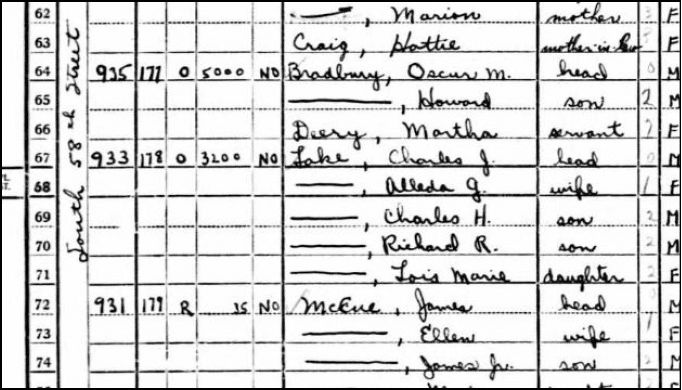 South 58th Street
62 ——, Marion mother 3 F
63 Craig, Hattie mother-in-law 3 F
64 935 177 O 5000 NO Bradbury, Oscar M. head 0 M
65 ——, Howard son 2 M
66 Deery, Martha servant 2 F
67 933 178 O 3200 NO Lake, Charles J. head 0 M
68 ——, Alleda G. wife 1 F
69 ——, Charles H. son 2 M
70 ——, Richard R. son 2 M
71 ——, Lois Marie daughter 2 F
72 931 179 R 35 NO McCue, James head 0 M
73 ——, Ellen wife 1 F
74 ——, James Jr. son 2 M